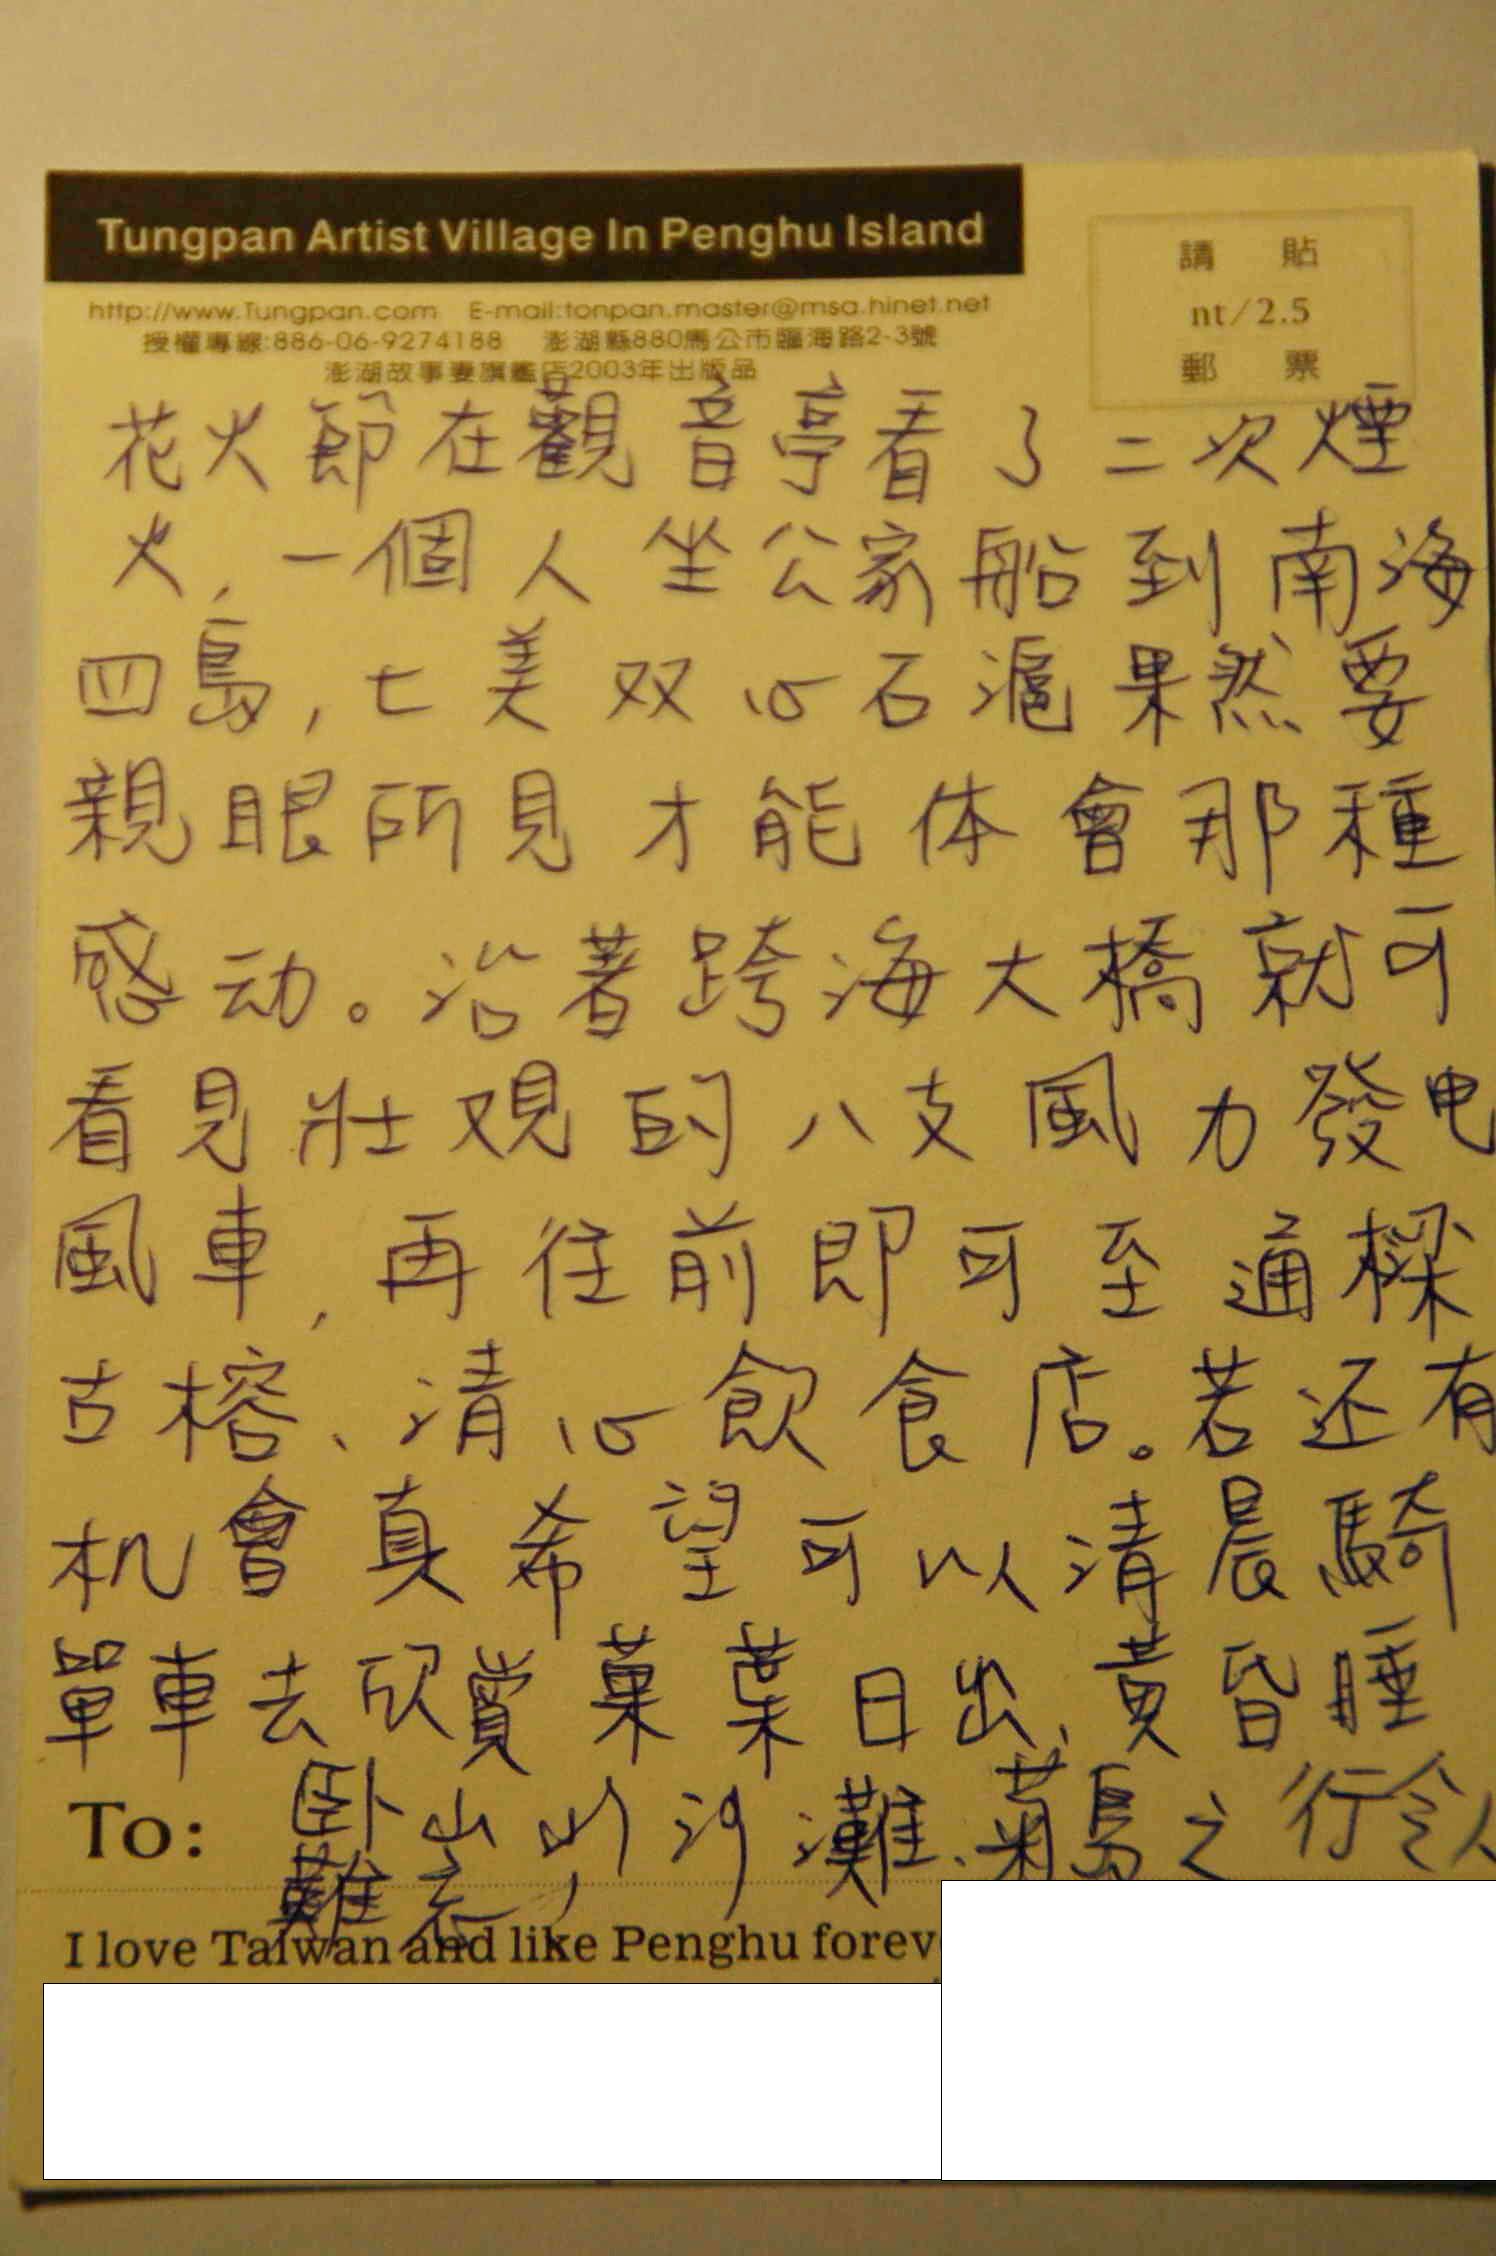 Tungpan Artist Village In Penghu Island
http://www.Tungpan.com E-mail:tonpan.master@msa.hinet.net
授權專線:886-06-9274188 澎湖縣880馬公市臨海路2-3號
澎湖故事妻旗艦店2003年出版品
請貼
nt/2.5
郵票
花火節在觀音亭看了二次煙
火,一個人坐公家船到南海
四島,七美双心石滬果然要
親眼所見才能体會那種
感动。沿著跨海大橋就可
看見壯观的八支風力發电
風車,再往前即可至通樑
古榕、清心飲食店。若还有
机會真希望可以清晨騎
單車去欣賞菓葉日出、黃昏睡
To: 卧山水沙灘、菊島之行令人
難忘!
I love Taiwan and like Penghu